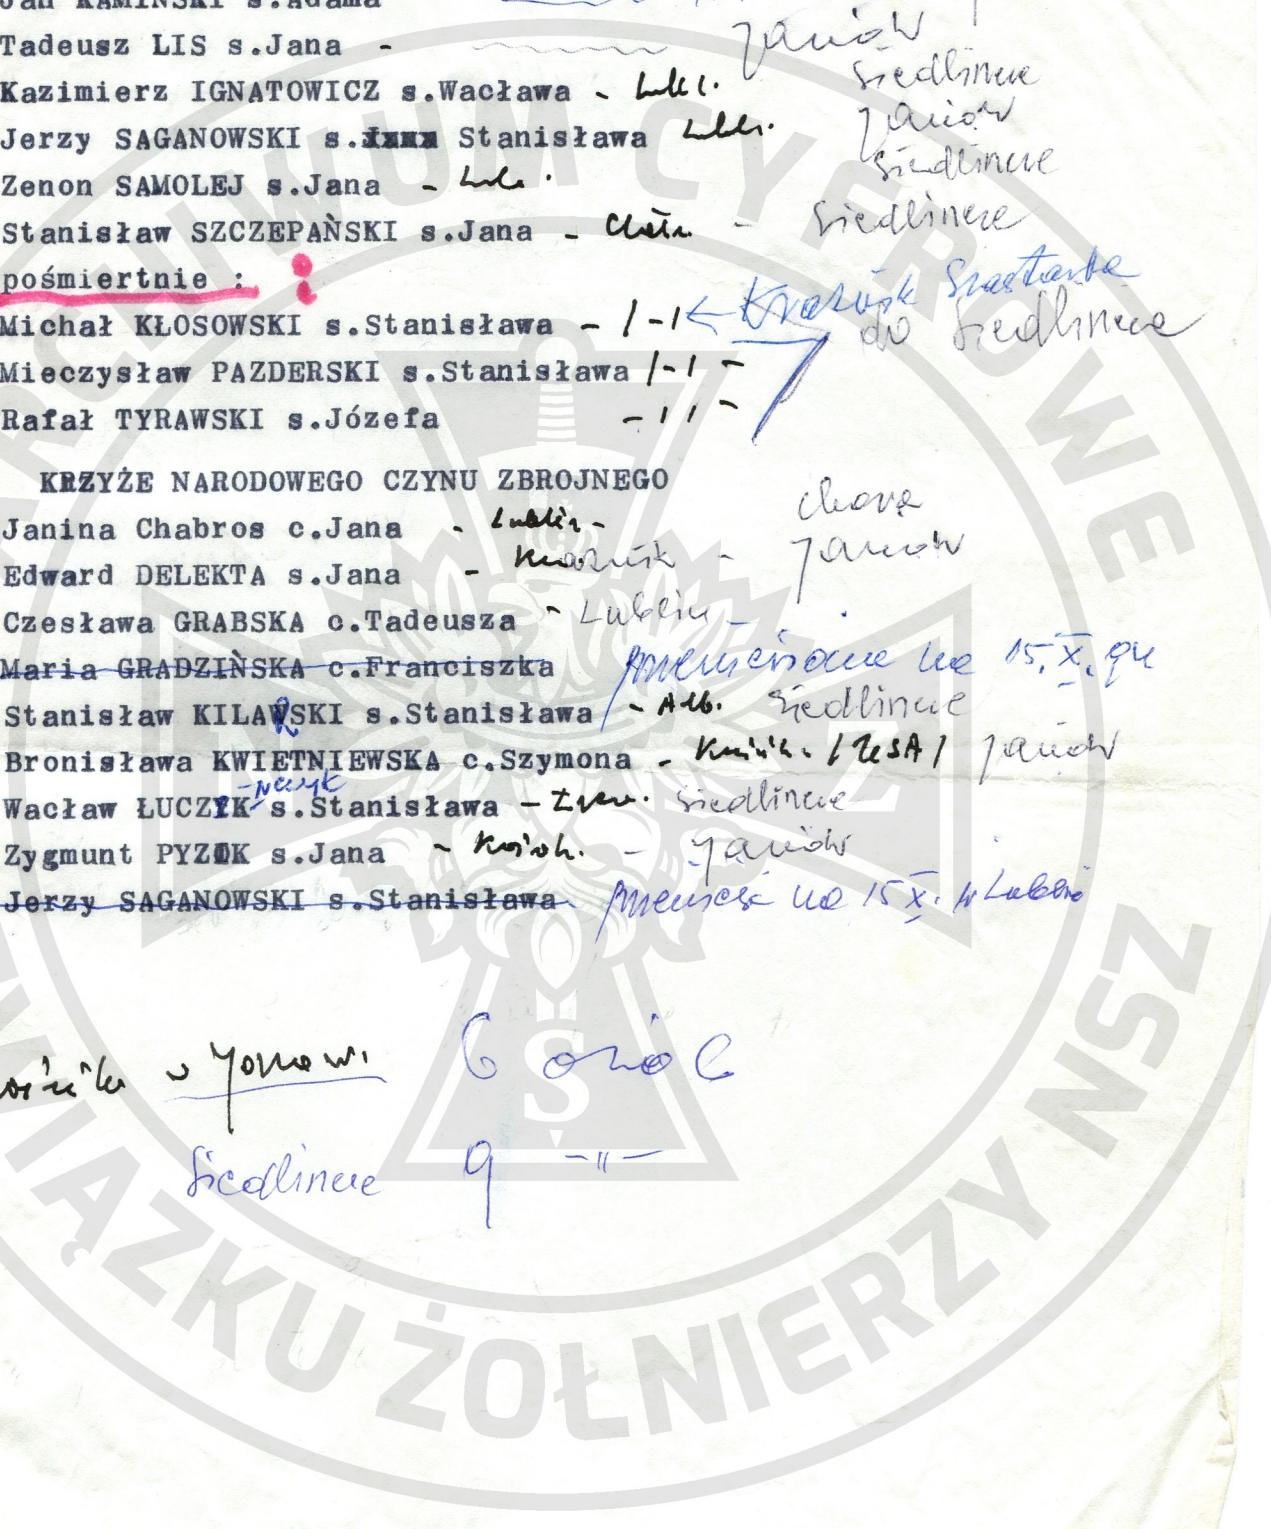 Jan KAMIŃSKI s.Adama
Tadeusz LIS s.Jana - Janów
Kazimierz IGNATOWICZ s.Wacława - Siedliszcze
Jerzy SAGANOWSKI s. Stanisława Janów
Zenon SAMOLEJ s.Jana - Siedliszcze
Stanisław SZCZEPAŃSKI s.Jana - Chełm - Siedliszcze
pośmiertnie :
Michał KŁOSOWSKI s.Stanisława - / -1 ← Kraśnik Szastarka
do Siedliszcze
Mieczysław PAZDERSKI s.Stanisława /-1 -
Rafał TYRAWSKI s.Józefa - 11 -
KRZYŻE NARODOWEGO CZYNU ZBROJNEGO
Janina Chabros c.Jana - Lublin - chora
Edward DELEKTA s.Jana - Kraśnik - Janów
Czesława GRABSKA c.Tadeusza - Lublin -
Maria GRADZIŃSKA c.Franciszka przeniesione na 15.X.94
Stanisław KILARSKI s.Stanisława - Siedliszcze
Bronisława KWIETNIEWSKA c.Szymona - Janów
Wacław ŁUCZYK s.Stanisława - Siedliszcze
Zygmunt PYZIK s.Jana - - Janów
Jerzy SAGANOWSKI s.Stanisława na 15 X. w Lublinie
w Janowi 6 osób
Siedliszcze 9 -"-
ARCHIWUM CYFROWE
ZWIĄZKU ŻOŁNIERZY NSZ